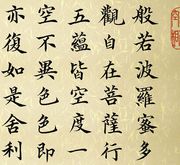 般若波羅蜜多
觀自在菩薩行
五蘊皆空度一
空不異色色即
亦復如是舍利